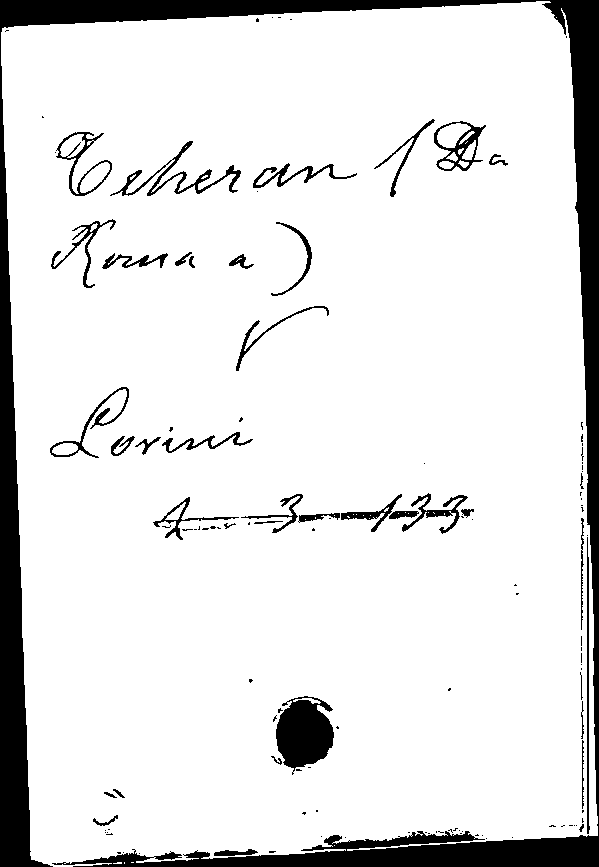 Teheran (Da
Roma a)
V
Lorini
2 3 133